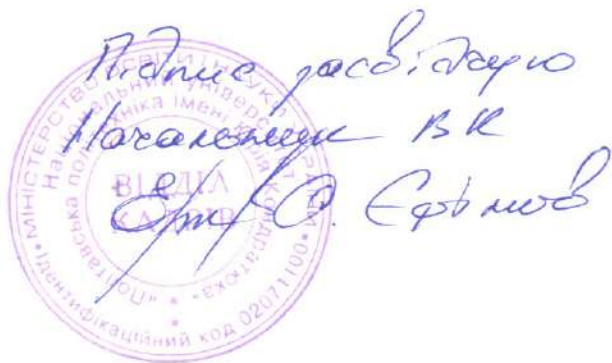 Підпис засвідчую
Начальник ВК
О. Єфімов
МІНІСТЕРСТВО ОСВІТИ І НАУКИ УКРАЇНИ
Національний університет
«Полтавська політехніка імені Юрія Кондратюка»
ВІДДІЛ
КАДРІВ
Ідентифікаційний код 02071100